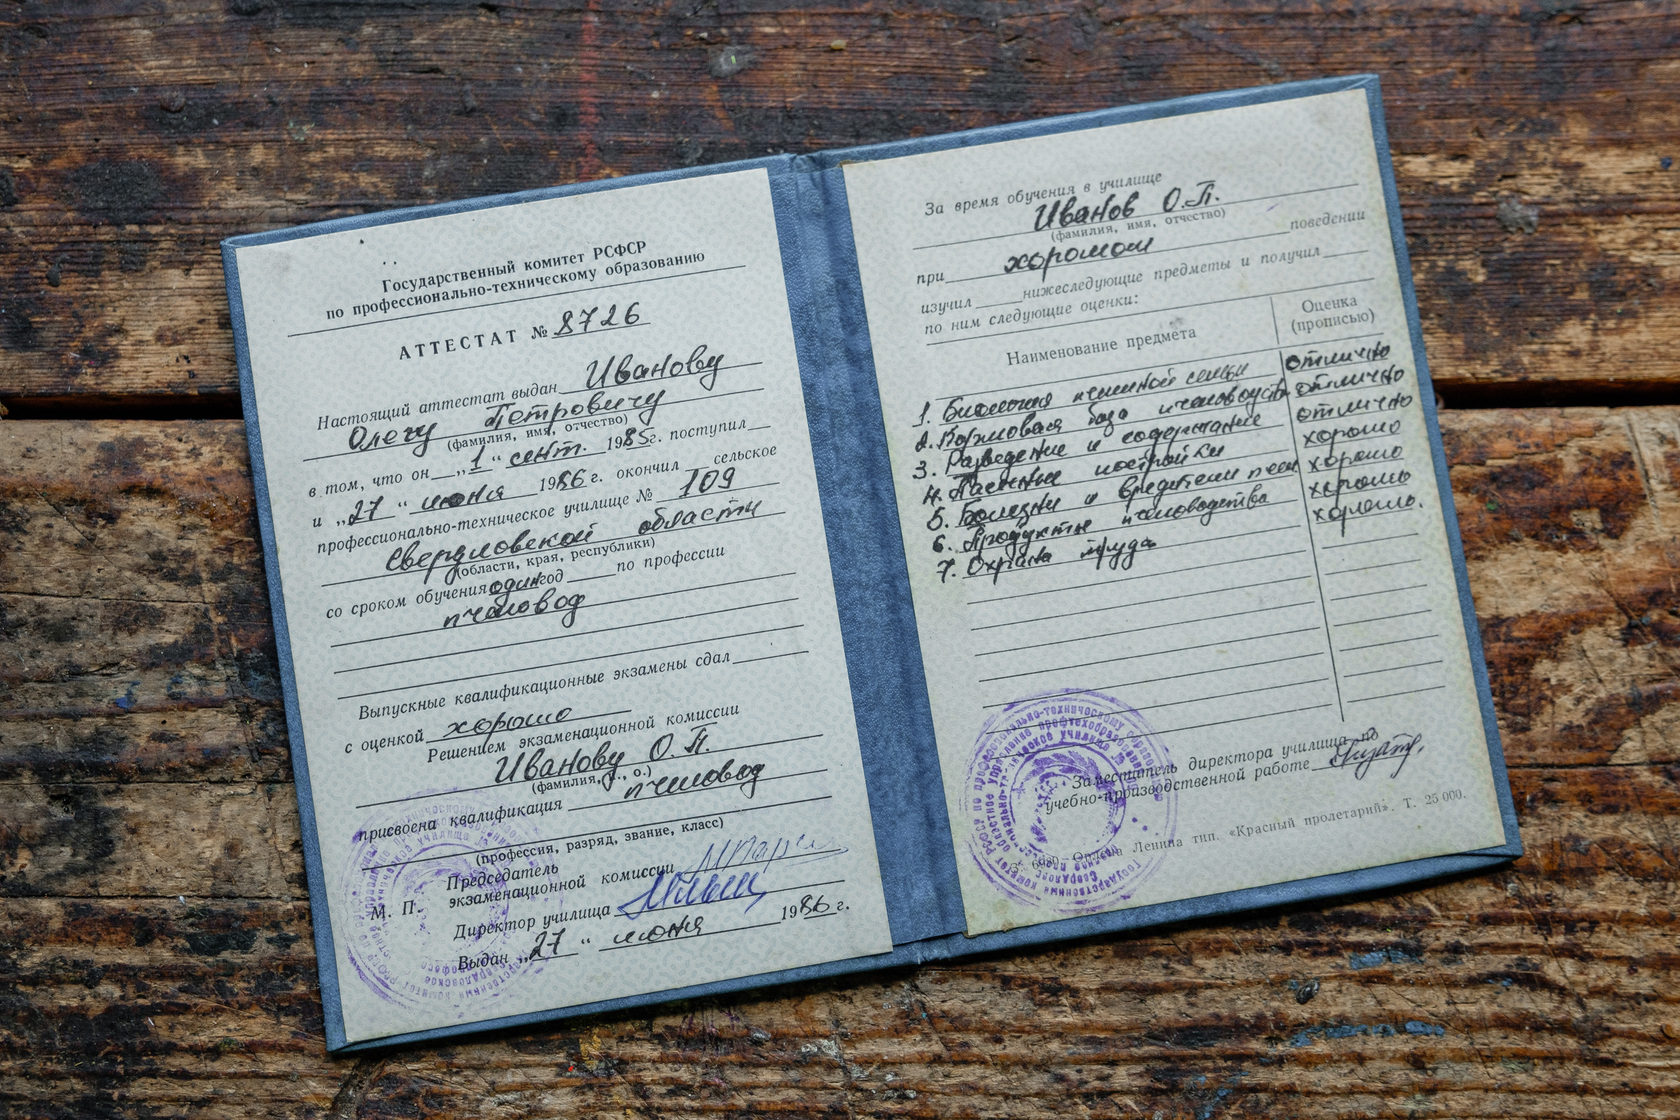 Государственный комитет РСФСР
по профессионально-техническому образованию
АТТЕСТАТ № 8726
Настоящий аттестат выдан Иванову
Олегу Петровичу
(фамилия, имя, отчество)
в том, что он „1“ сент. 1985г. поступил
и „27“ июня 1986 г. окончил сельское
профессионально-техническое училище № 109
Свердловской области
(области, края, республики)
со сроком обучения один год по профессии
пчеловод
Выпускные квалификационные экзамены сдал
с оценкой хорошо
Решением экзаменационной комиссии
Иванову О.П.
(фамилия, и., о.)
присвоена квалификация пчеловод
(профессия, разряд, звание, класс)
Председатель
экзаменационной комиссии
М. П.
Директор училища
Выдан „27“ июня 1986 г.
За время обучения в училище
Иванов О.П.
(фамилия, имя, отчество)
при хорошом поведении
изучил нижеследующие предметы и получил
по ним следующие оценки:
Наименование предмета Оценка (прописью)
1. Биология пчелиной семьи отлично
2. Кормовая база пчеловодства отлично
3. Разведение и содержание отлично
4. Пасечные постройки хорошо
5. Болезни и вредители пчел хорошо
6. Продукты пчеловодства хорошо
7. Охрана труда хорошо.
Заместитель директора училища по
учебно-производственной работе
Ордена Ленина тип. «Красный пролетарий». Т. 25 000.